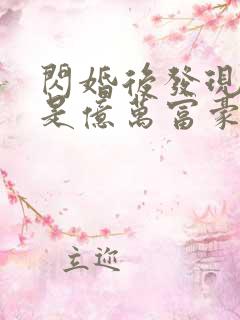 閃婚後發現
是億萬富豪
立迎